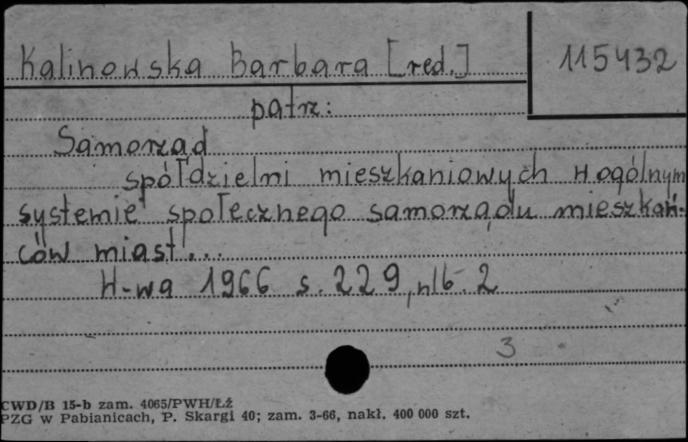 Kalinowska Barbara [red.]
115432
patrz:
Samorząd
spółdzielni mieszkaniowych w ogólnym
systemie społecznego samorządu mieszkań-
ców miast...
W-wa 1966 s. 229, nlb. 2
3
CWD/B 15-b zam. 4065/PWH/ŁŻ
PZG w Pabianicach, P. Skargi 40; zam. 3-66, nakł. 400 000 szt.